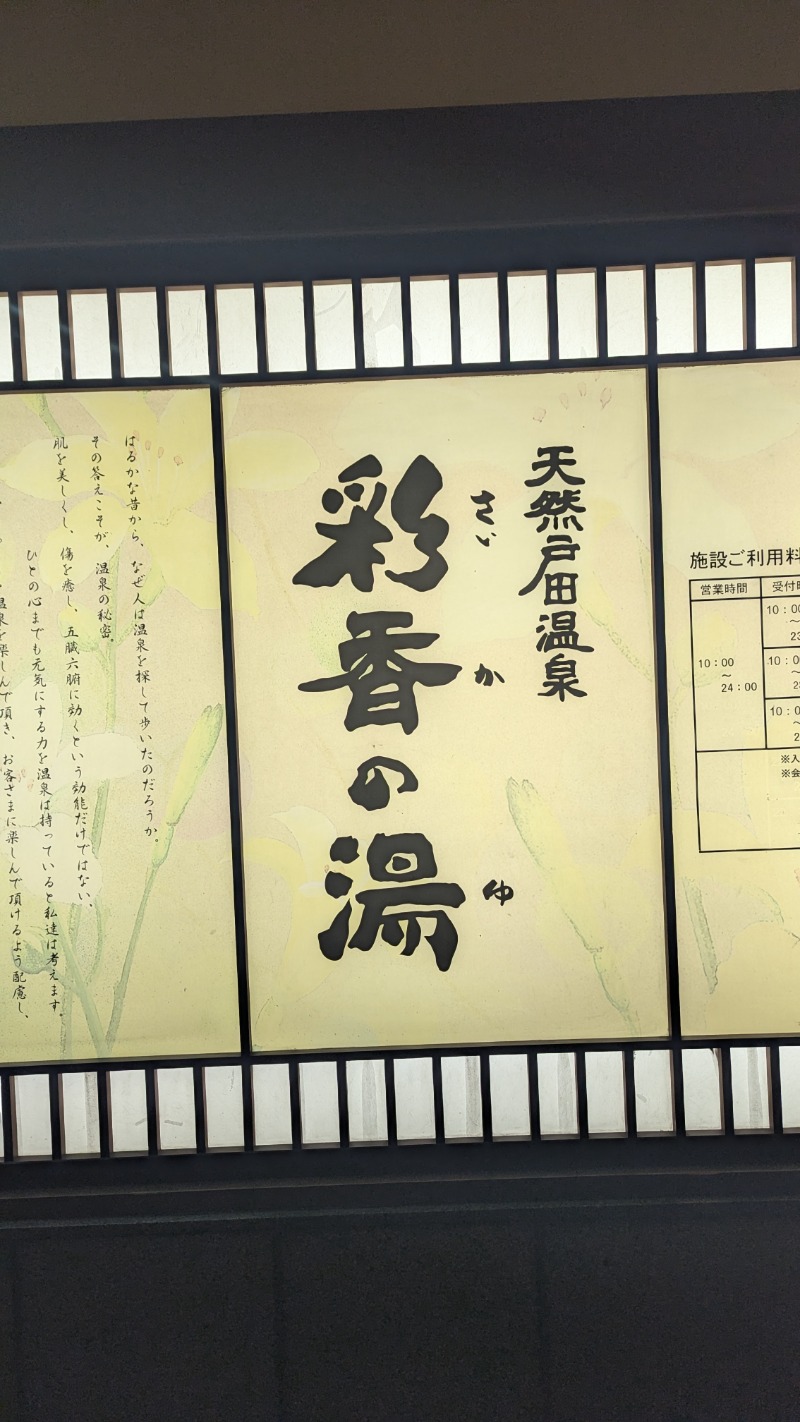 天然戸田温泉
彩香の湯
さい
か
ゆ
はるかな昔から、なぜ人は温泉を探して歩いたのだろうか。
その答えこそが、温泉の秘密。
肌を美しくし、傷を癒し、五臓六腑に効くという効能だけではない、
ひとの心までも元気にする力を温泉は持っていると私達は考えます。
楽しんで頂き、お客さまに楽しんで頂けるよう配慮し、
施設ご利用料
営業時間
受付時
10：00
～
24：00
10：00
～
23
10：0
～
2
10：0
～
2
※入
※会